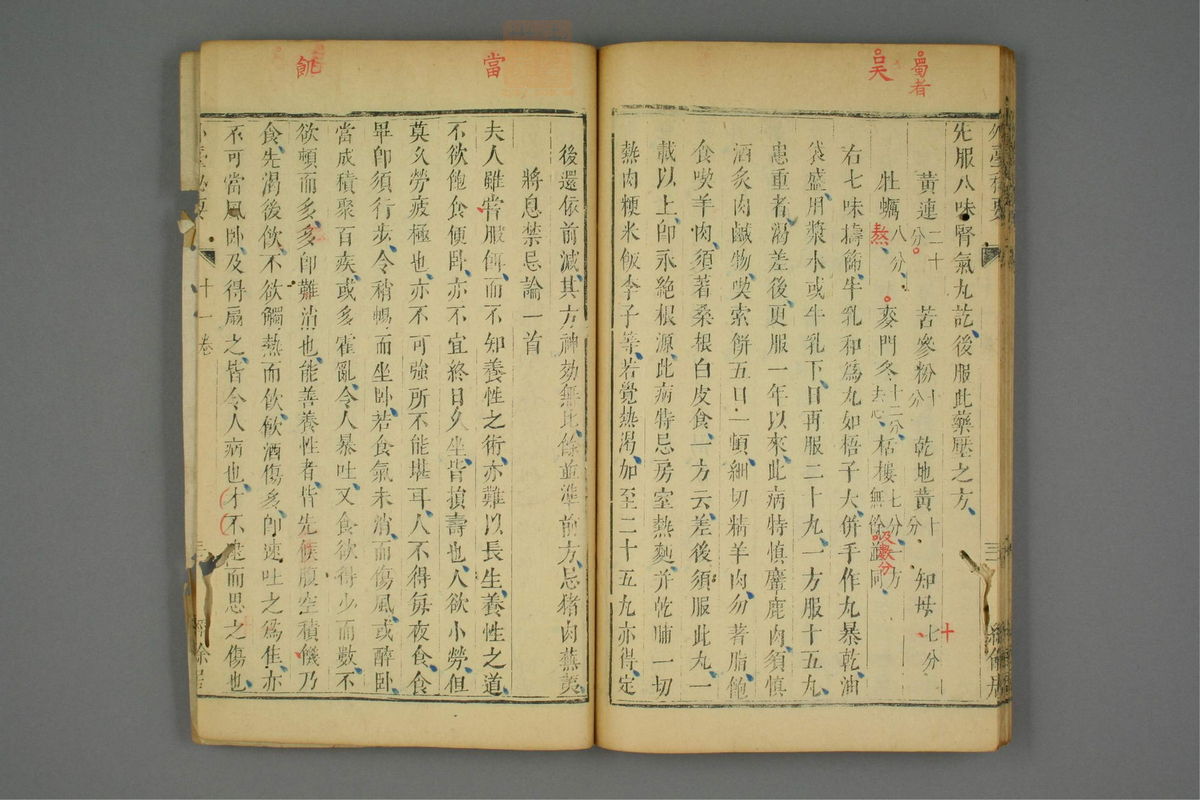 蜀者
吴
先服八味腎氣丸訖後服此藥壓之方
黃連二十分 苦參粉十分 乾地黃十分 知母七分
十
牡蠣八分 麥門冬十二分去心 栝樓七分一方無餘竝同
熬
及數分
右七味擣篩牛乳和爲丸如梧子大併手作丸暴乾油
袋盛用漿水或牛乳下日再服二十丸一方服十五丸
患重者渴差後更服一年以來此病特慎麞鹿肉須慎
酒炙肉鹹物喫索餅五日一頓細切精羊肉勿著脂飽
食喫羊肉須著桑根白皮食一方云差後須服此丸一
載以上卽永絕根源此病特忌房室熱麪并乾脯一切
熱肉粳米飯李子等若覺熱渴加至二十五丸亦得定
當
飢
後還依前減其方神効無比餘並準前方忌猪肉蕪荑
將息禁忌論一首
夫人雖嘗服餌而不知養性之術亦難以長生養性之道
不欲飽食便卧亦不宜終日久坐皆損壽也人欲小勞但
莫久勞疲極也亦不可強所不能堪耳人不得每夜食食
畢卽須行步令稍暢而坐卧若食氣未消而傷風或醉卧
當成積聚百疾或多霍亂令人暴吐又食欲得少而數不
欲頓而多多卽難消也能善養性者皆先候腹空積饑乃
食先渴後飲不欲觸熱而飲飲酒傷多卽速吐之爲佳亦
不可當風卧及得扇之皆令人病也才不逮而思之傷也
十一卷